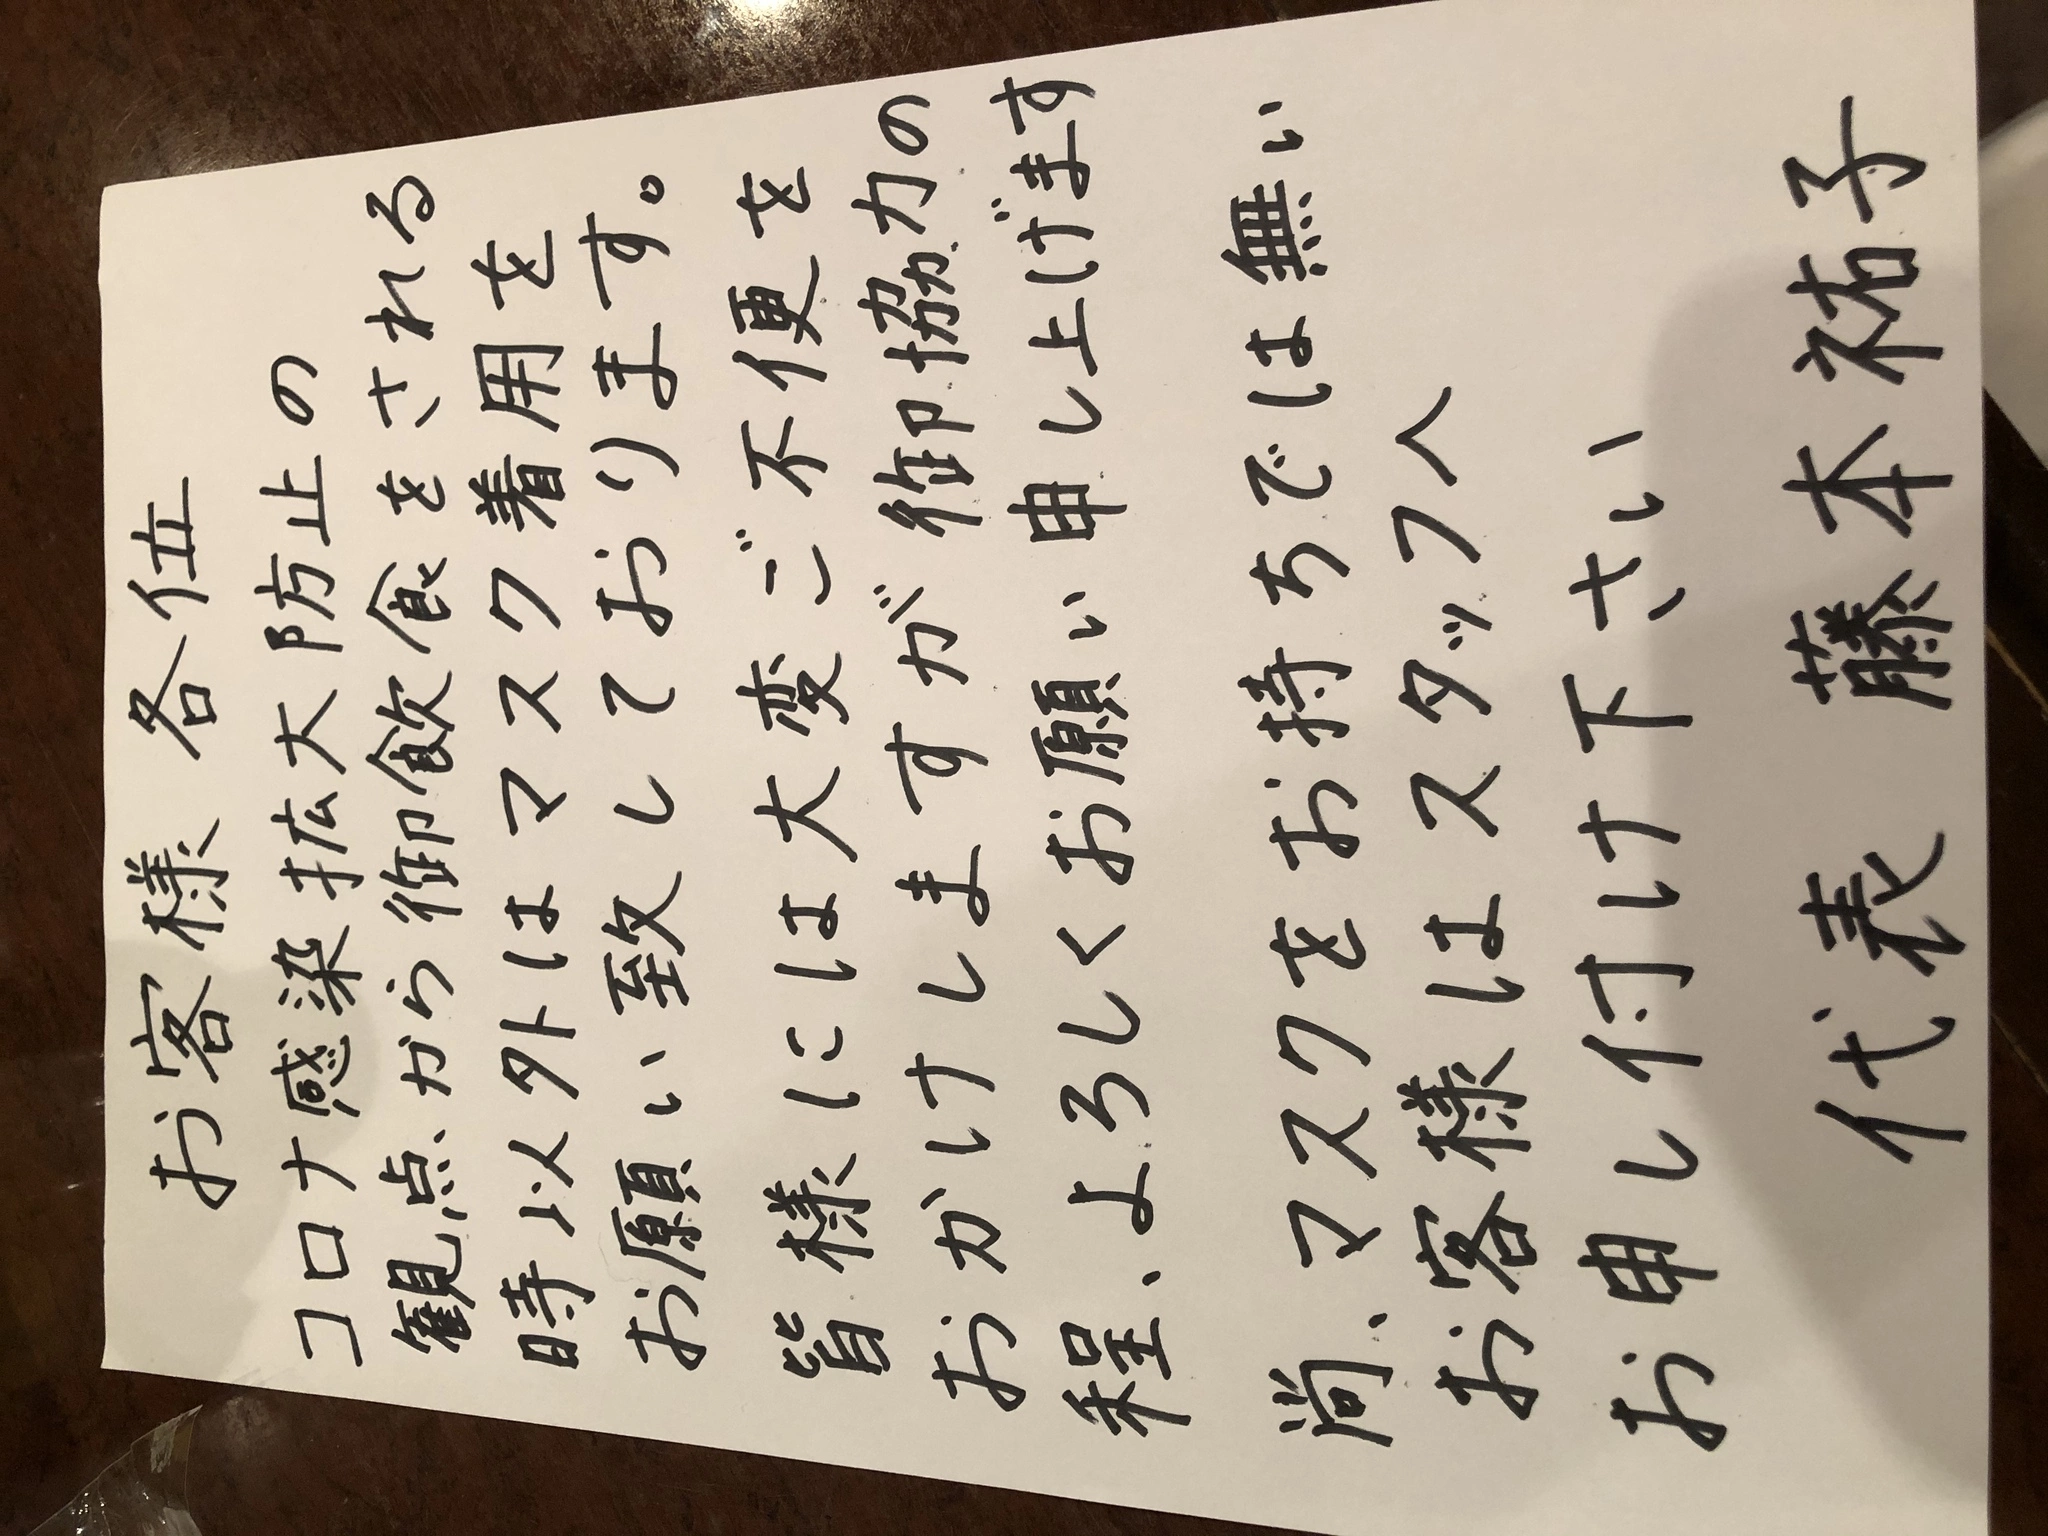 お客様 各位
コロナ感染拡大防止の
観点から御飲食をされる
時以外はマスク着用を
お願い致しております。
皆様には大変ご不便を
おかけしますが御協力の
程、よろしくお願い申し上げます
尚、マスクをお持ちでは無い
お客様はスタッフへ
お申し付け下さい
代表 藤本祐子